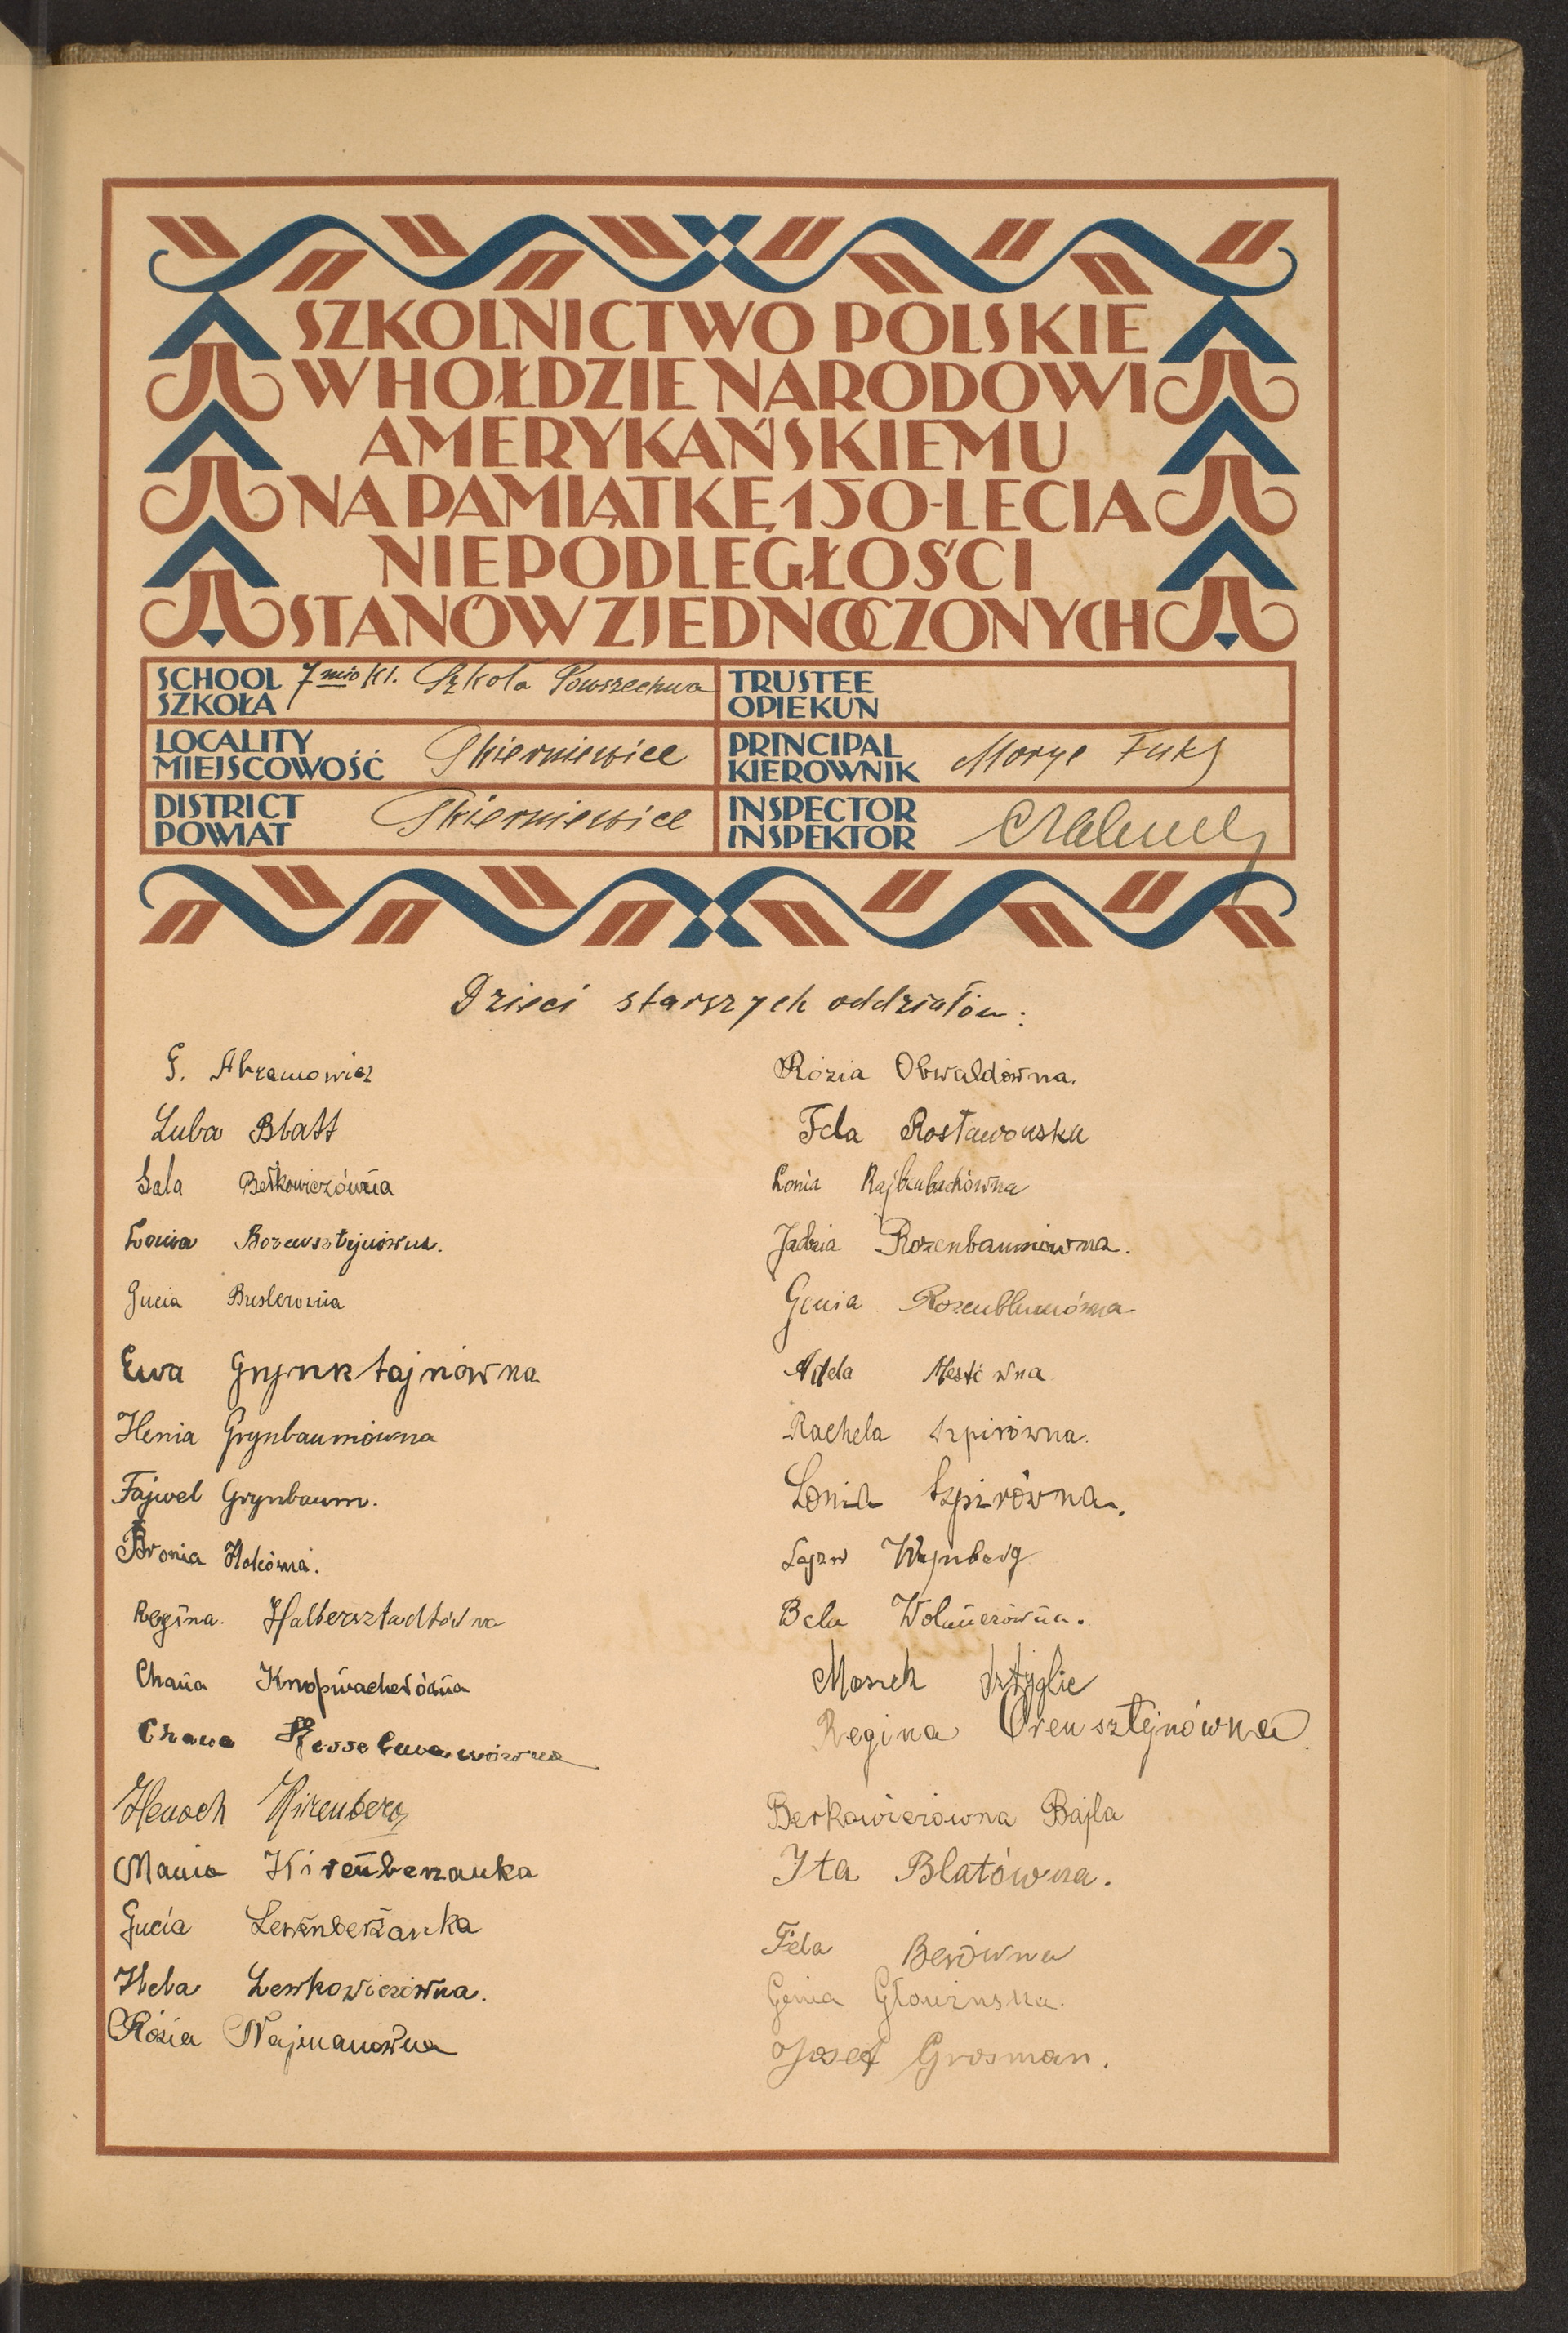 SZKOLNICTWO POLSKIE
W HOŁDZIE NARODOWI
AMERYKAŃSKIEMU
NA PAMIĄTKĘ 150-LECIA
NIEPODLEGŁOŚCI
STANÓW ZJEDNOCZONYCH
SCHOOL
SZKOŁA 7mio kl. Szkoła Powszechna
TRUSTEE
OPIEKUN
LOCALITY
MIEJSCOWOŚĆ Skierniewice
PRINCIPAL
KIEROWNIK Moryc Fuks
DISTRICT
POWIAT Skierniewice
INSPECTOR
INSPEKTOR
Dzieci starszych oddziałów:
G. Abramowicz
Luba Blatt
Sala Berkowiczówna
Lonia Borensztejnówna.
Gucia Buslerówna
Ewa Grynsztajnówna
Henia Grynbaumówna
Fajwel Grynbaum.
Bronia
Regina. Halbersztadtówna
Chana Knopwacherówna
Chawa
Henoch Kirenberg
Mania Kirenberżanka
Gucia Lewenberżanka
Hela Lewkowiczówna.
Rózia Najmanówna
Rózia Obwaldówna.
Fela Rosławowska
Lonia Rajzenbachówna
Jadzia Rozenbaumówna.
Genia Rozenblumówna
Adela
Rachela Szpirówna.
Lonia Szpirówna.
Lajzer Wajnberg
Bela Wolmerówna.
Moszek Sztyglic
Regina Orensztejnówna.
Berkowiczówna Bajla
Ita Blatówna.
Fela Berówna
Genia Głowińska.
Josef Grosman.